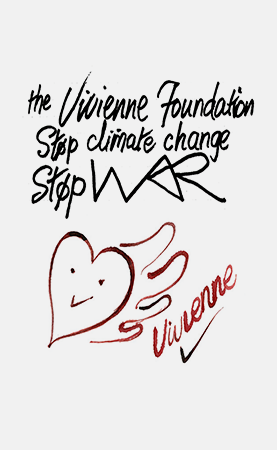 the Vivienne Foundation
Støp climate change
Støp WAR
Vivienne